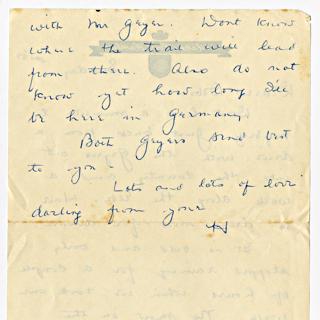 with Mr Geyer. Dont know
where the trail will lead
from there. Also do not
know yet how long I'll
be here in Germany
Both Geyers send best
to you
Lots and lots of love
darling from your